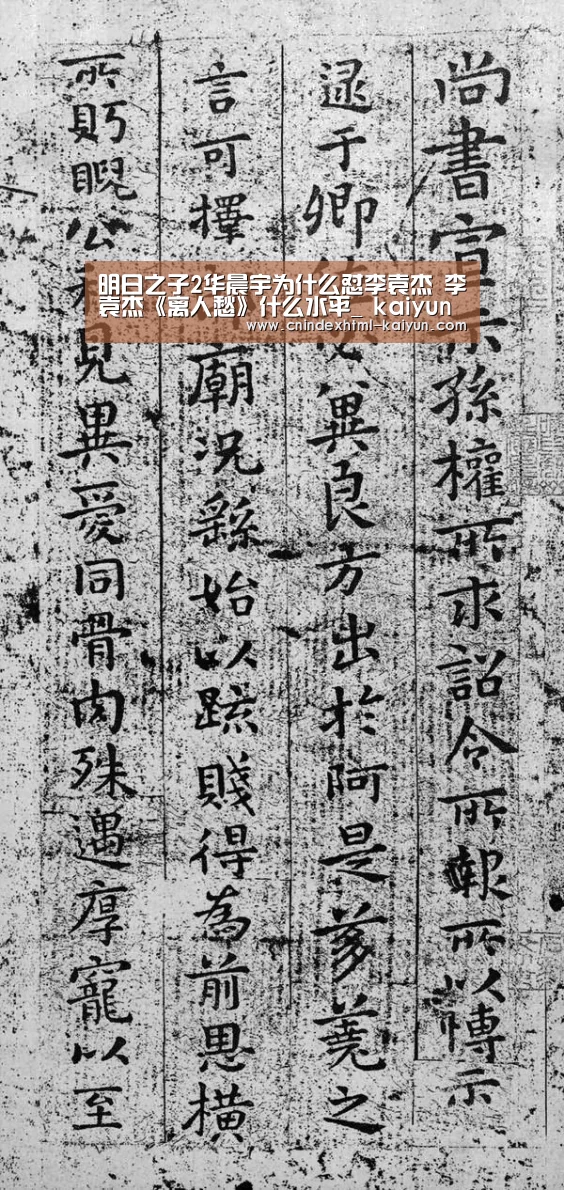 尚書宣示孫權所求詔令所報所以博示
逮于卿異良方出於阿是芻蕘之
言可擇廟況繇始以疏賤得為前恩橫
所眄睨公見異愛同骨肉殊遇厚寵以至
明日之子2华晨宇为什么怼李袁杰 李
袁杰《离人愁》什么水平_ kaiyun
www.cnindexhtml-kaiyun.com